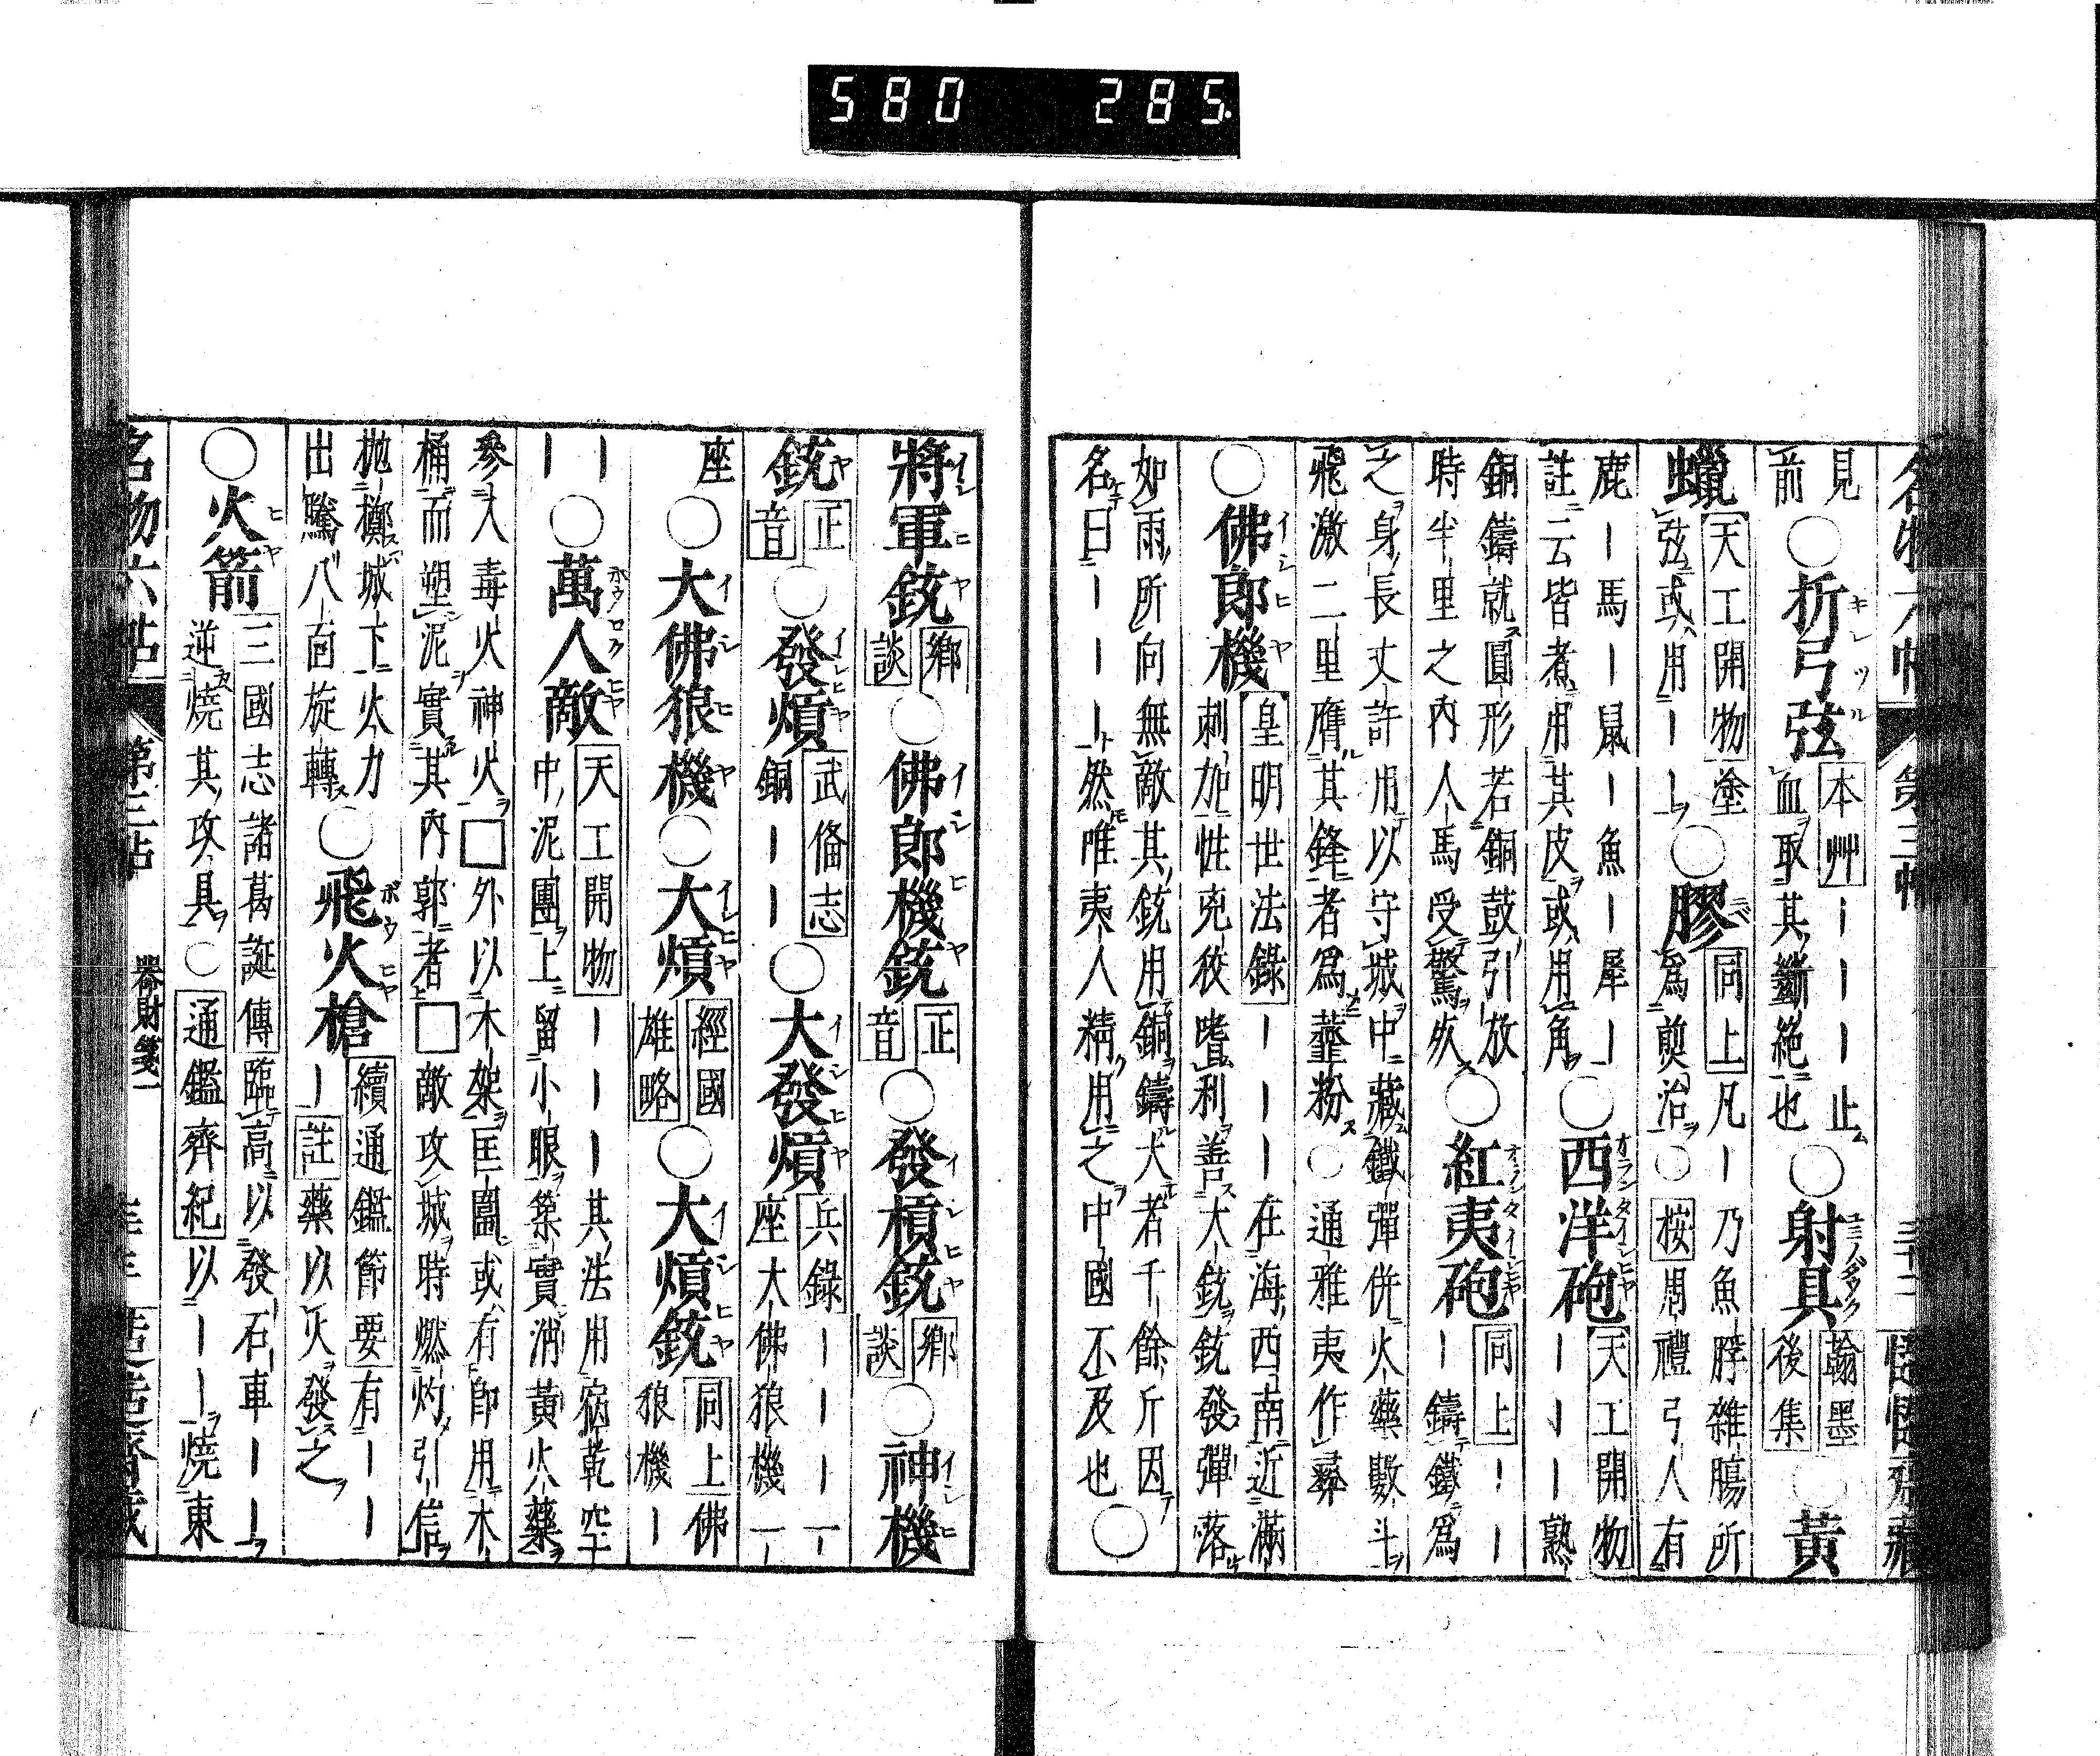 580 285
名物六帖 第三帖 三十二 齋藏
見前○折弓弦 本艸｜｜｜止血取其斷絶也○射具 翰墨後集○黃
蠟 天工開物塗弦或用｜｜○膠 同上凡｜乃魚脬雜膓所爲煎治○按周禮弓人有
鹿｜馬｜鼠｜魚｜犀｜註云皆煮用其皮或用角○西洋砲 天工開物｜｜｜熟
銅鑄就圓形若銅鼓引放時半里之內人馬受驚死○紅夷砲 同上｜｜｜鑄鐵爲
之身長丈許用以守城中藏鐵彈併火藥數斗飛激二里膺其鋒者爲虀粉○通雅夷作
○佛郎機 皇明世法錄｜｜｜在海西南近滿刺加性兇狡嗜利善大銃銃發彈落
如雨所向無敵其銃用銅鑄大者千餘斤因名曰｜｜｜然唯夷人精用之中國不及也○
將軍銃 鄉談○佛郎機銃 正音○發槓銃 鄉談○神機
銃 正音○發熕 武俻志銅｜｜○大發熕 兵錄｜｜｜一座大佛狼機一｜
座○大佛狼機○大熕 經國雄略○大熕銃 同上佛狼機｜
｜｜○萬人敵 天工開物｜｜｜其法用宿乾空中泥團上留小眼築實消黃火藥
參入毒火神火□外以木架匡圍或有卽用木桶而塑泥實其內郭者□敵攻城時燃灼引信
抛擲城下火力出騰八面旋轉○飛火槍 續通鑑節要有｜｜｜註藥以火發之
○火箭 三國志諸葛誕傳臨高以發石車｜｜逆燒其攻具○通鑑齊紀以｜｜燒東
名物六帖 第三帖 器財箋一 齋藏